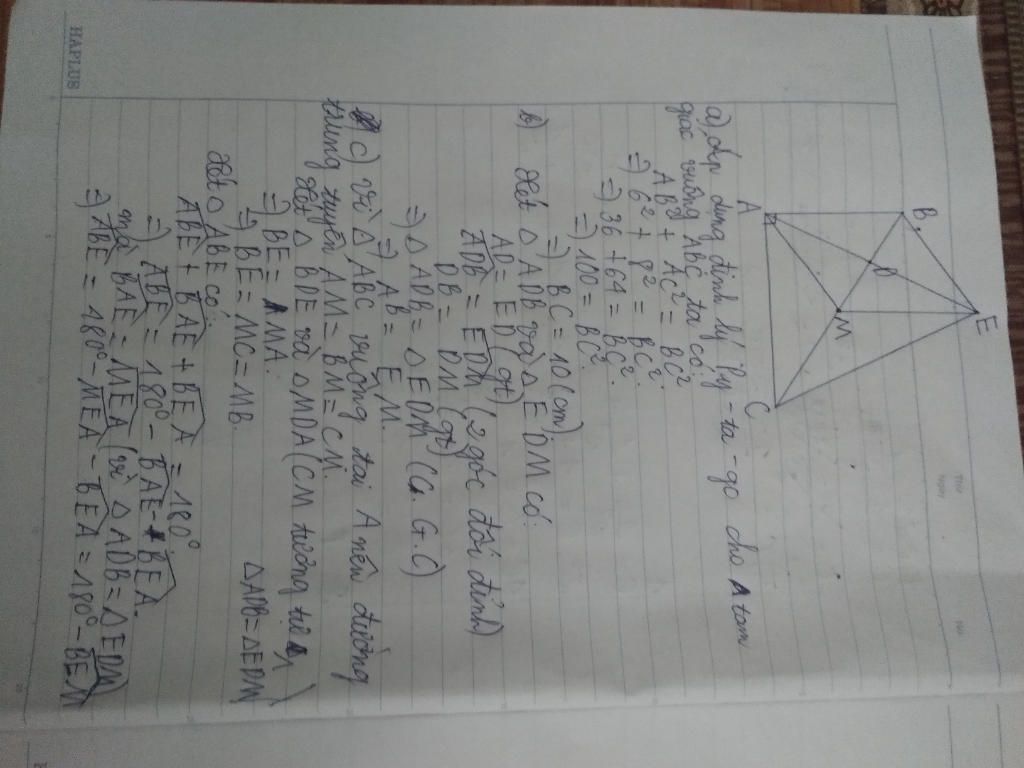 HAPLUS
Thứ
Ngày
No.
B
E
D
M
A
C
a) Áp dụng định lý Py-ta-go cho tam
giác vuông ABC ta có:
AB² + AC² = BC²
⇒ 6² + 8² = BC²
⇒ 36 + 64 = BC²
⇒ 100 = BC²
⇒ BC = 10 (cm)
b) Xét △ ADB và △ EDM có:
AD = ED (gt)
ADB = EDM (2 góc đối đỉnh)
DB = DM (gt)
⇒ △ ADB = △ EDM (C. G. C)
⇒ AB = EM.
c) Vì △ ABC vuông tại A nên đường
trung tuyến AM = BM = CM.
Xét △ BDE và △ MDA (CM tương tự
△ADB = △EDM)
⇒ BE = MA.
⇒ BE = MC = MB.
Xét △ ABE có:
ABE + BAE + BEA = 180°
⇒ ABE = 180° - BAE - BEA.
mà BAE = MEA (vì △ ADB = △ EDM)
⇒ ABE = 180° - MEA - BEA = 180° - BEM